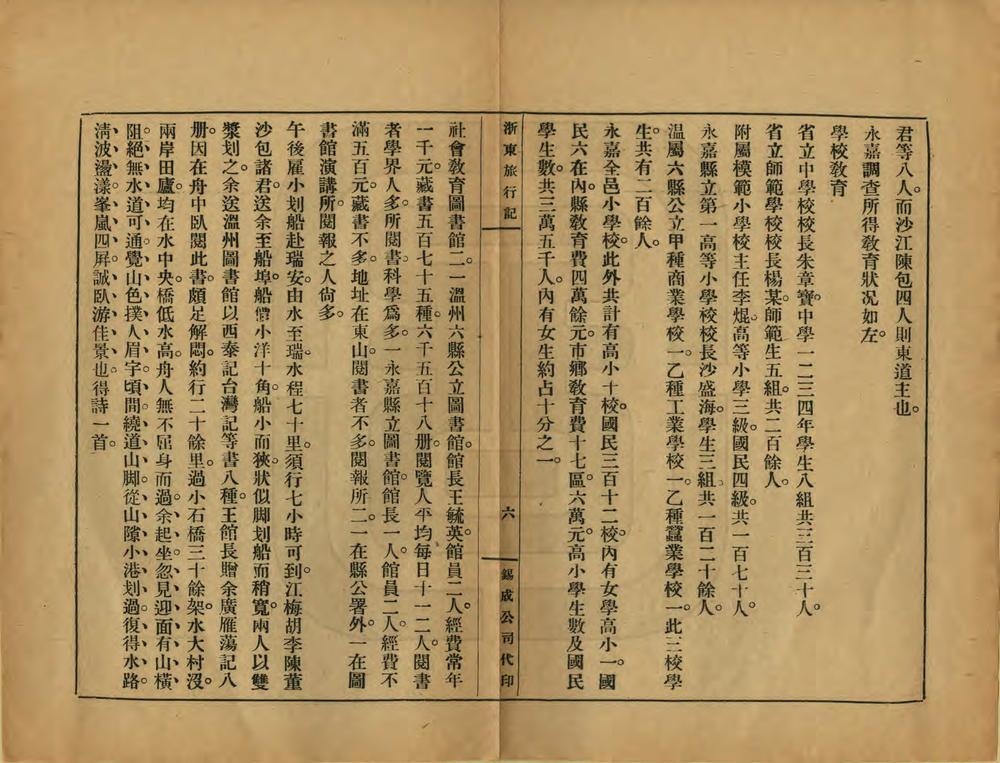 君等八人。而沙江陳包四人則東道主也。
永嘉調查所得教育狀况如左。
學校教育
省立中學校校長朱章寶。中學一二三四年學生八組共三百三十人。
省立師範學校校長楊某。師範生五組。共二百餘人。
附屬模範小學校主任李焜。高等小學三級。國民四級。共一百七十人。
永嘉縣立第一高等小學校校長沙盛海。學生三組。共一百二十餘人。
温屬六縣公立甲種商業學校一。乙種工業學校一。乙種蠶業學校一。此三校學
生。共有二百餘人。
永嘉全邑小學校。此外共計有高小十校。國民三百十二校。內有女學高小一。國
民六在內。縣教育費四萬餘元。市鄉教育費十七區。六萬元。高小學生數及國民
學生數。共三萬五千人。內有女生約占十分之一。
浙東旅行記
六
錫成公司代印
社會教育圖書館二。一溫州六縣公立圖書館。館長王毓英。館員二人。經費常年
一千元。藏書五百七十五種。六千五百十八册。閱覽人平均每日十一二人。閱書
者學界人多。所閱書科學爲多。一永嘉縣立圖書館。館長一人。館員二人。經費不
滿五百元。藏書不多。地址在東山。閱書者不多。閱報所二。一在縣公署外。一在圖
書館演講所。閱報之人尙多。
午後雇小划船赴瑞安。由水至瑞。水程七十里。須行七小時可到。江梅胡李陳董
沙包諸君。送余至船埠。船價小洋十角。船小而狹。狀似脚划船而稍寬。兩人以雙
槳划之。余送溫州圖書館以西泰記台灣記等書八種。王館長贈余廣雁蕩記八
册。因在舟中臥閱此書。頗足解悶。約行二十餘里。過小石橋三十餘架。水大村沒。
兩岸田廬。均在水中央。橋低水高。舟人無不屈身而過。余起坐。忽見迎面有山橫
阻。絕無水道可通。覺山色撲人眉宇。頃間繞道山脚。從山隙小港划過。復得水路。
清波盪漾。峯嵐四屏。誠臥游佳景也。得詩一首。